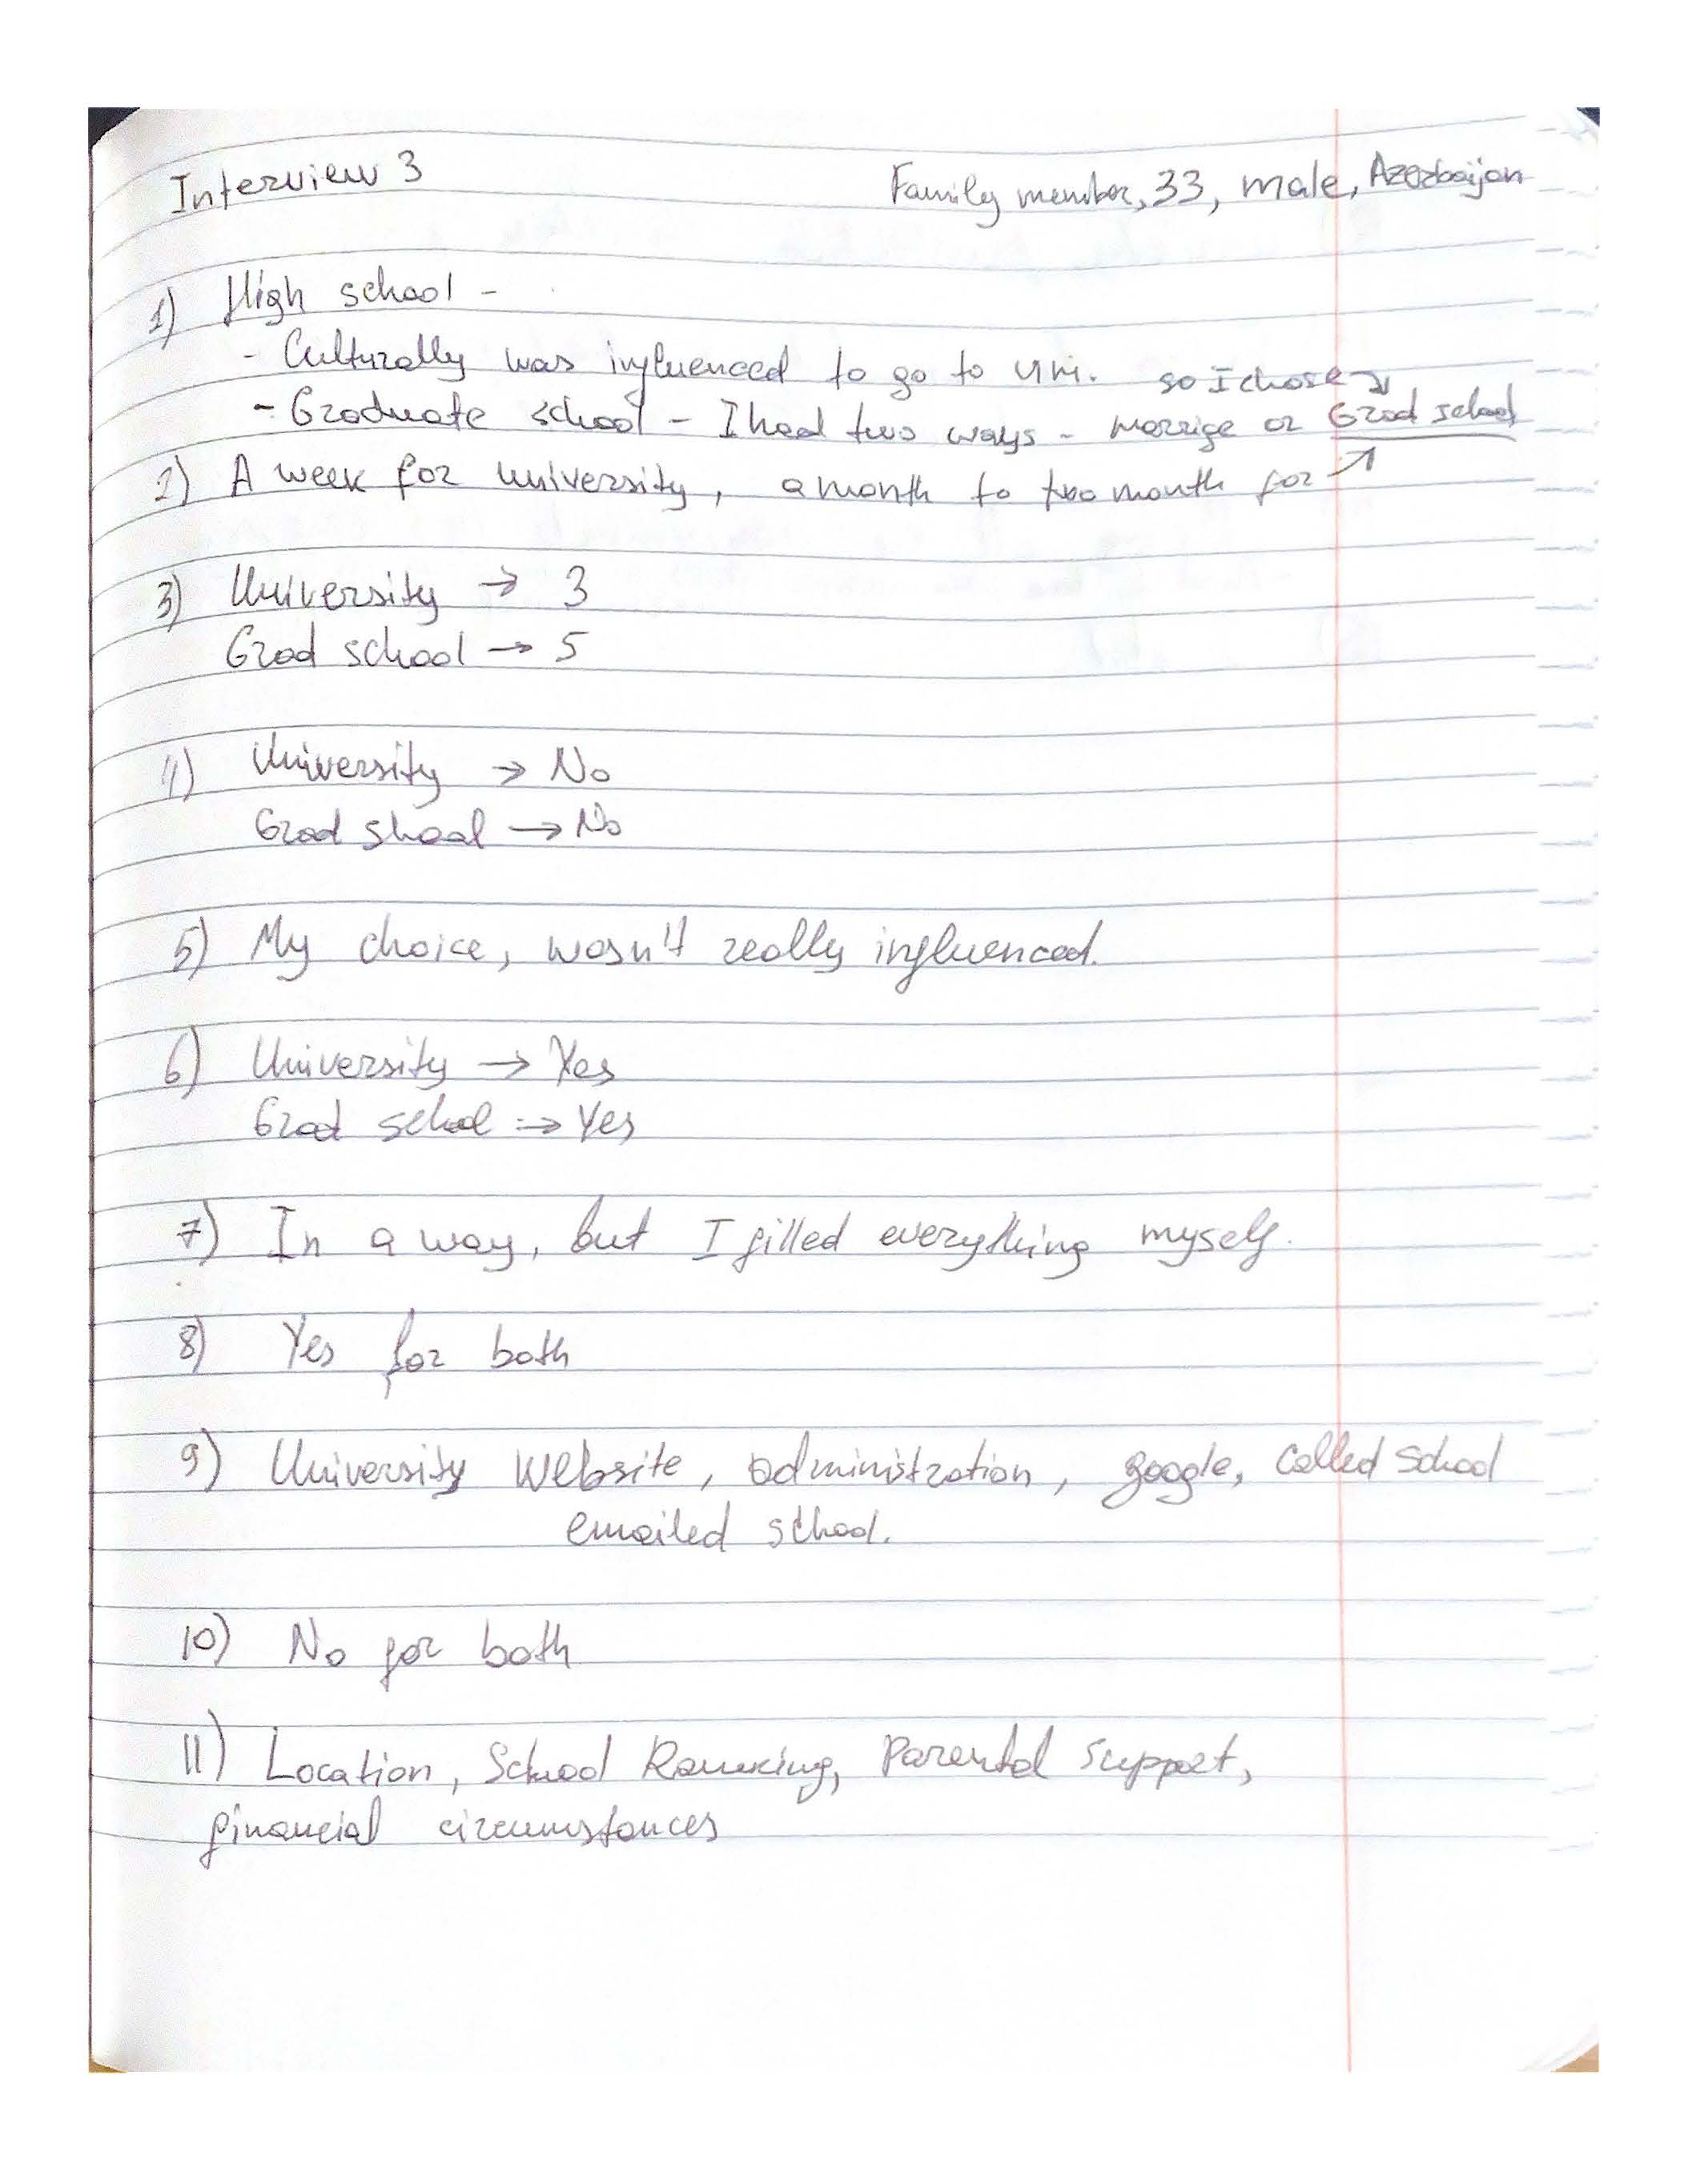 Interview 3
Family member, 33, male, Azerbaijan
1) High school -
- Culturally was influenced to go to uni. so I chose
- Graduate school - I had two ways - marrige or Grad school
2) A week for university, a month to two month for
3) University → 3
Grad school → 5
4) University → No
Grad shool → No
5) My choice, wasn't really influenced.
6) University → Yes
Grad school → Yes
7) In a way, but I filled everything myself.
8) Yes for both
9) University website, administration, google, called school
emailed school.
10) No for both
11) Location, School Ranking, Parental support,
financial circumstances